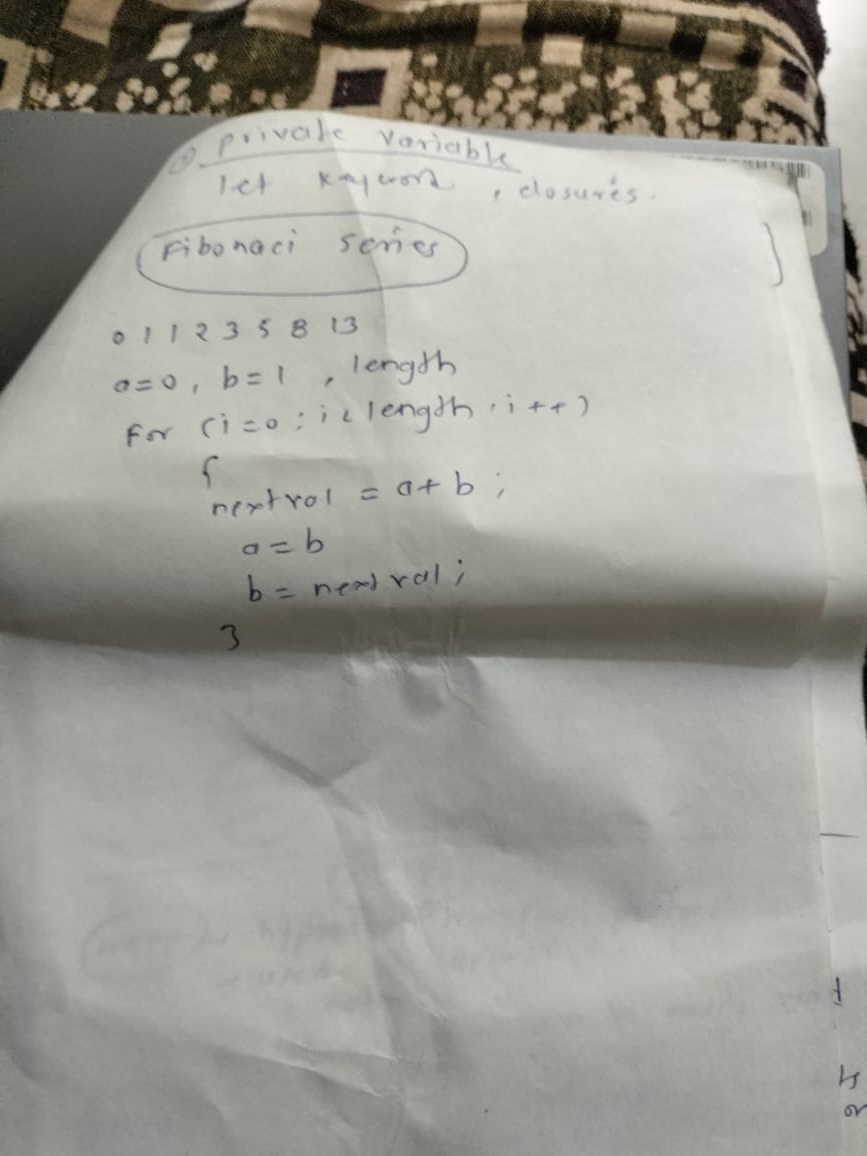 ① private variable
let keyword , closures.
Fibonaci series }
0 1 1 2 3 5 8 13
a=0, b=1 , length
For (i=0; i< length; i++)
{
nextval = a+b;
a=b
b= nextval;
}